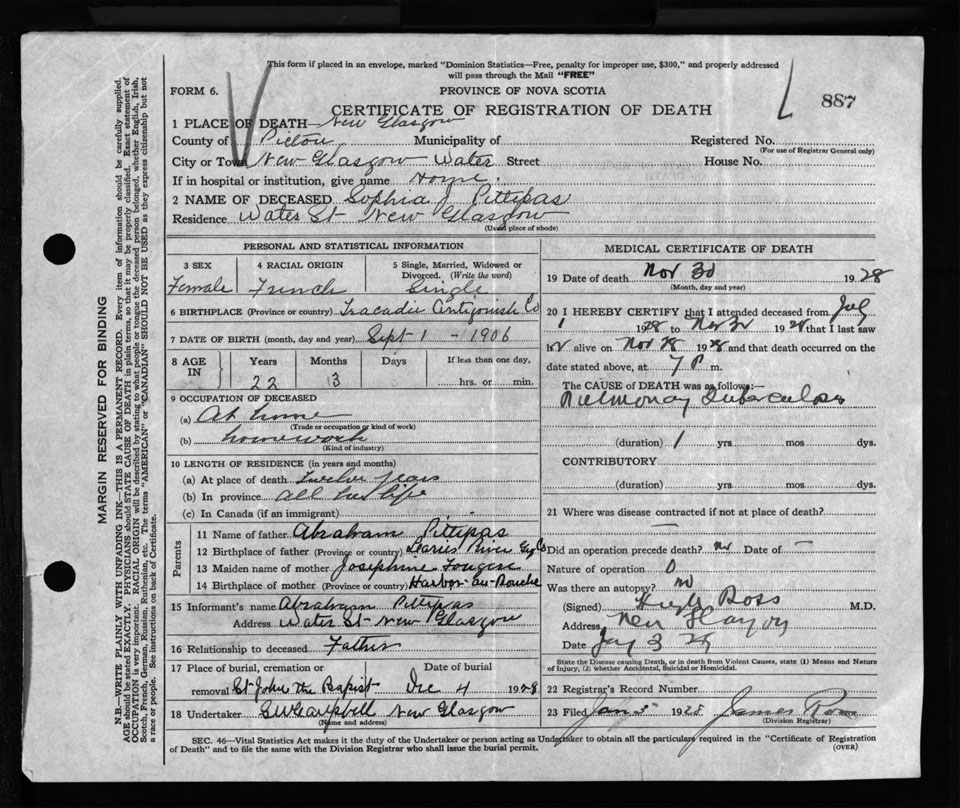 This form if placed in an envelope, marked "Dominion Statistics—Free, penalty for improper use, $300," and properly addressed
will pass through the Mail "FREE"
FORM 6.
PROVINCE OF NOVA SCOTIA
887
CERTIFICATE OF REGISTRATION OF DEATH
1 PLACE OF DEATH New Glasgow
County of Pictou Municipality of Registered No.
(For use of Registrar General only)
City or Town New Glasgow Water Street House No.
If in hospital or institution, give name Home.
2 NAME OF DECEASED Sophia J Pittipas
Residence Water St New Glasgow
(Usual place of abode)
PERSONAL AND STATISTICAL INFORMATION
3 SEX 4 RACIAL ORIGIN 5 Single, Married, Widowed or
Divorced. (Write the word)
Female French Single
6 BIRTHPLACE (Province or country) Tracadie Antigonish Co
7 DATE OF BIRTH (month, day and year) Sept 1 - 1906
8 AGE IN Years Months Days If less than one day,
22 3 hrs. or min.
9 OCCUPATION OF DECEASED
(a) At home
(Trade or occupation or kind of work)
(b) homework
(Kind of industry)
10 LENGTH OF RESIDENCE (in years and months)
(a) At place of death twelve years
(b) In province all her life
(c) In Canada (if an immigrant)
Parents
11 Name of father Abraham Pittipas
12 Birthplace of father (Province or country) River Co
13 Maiden name of mother Josephine Fougere
14 Birthplace of mother (Province or country) Harbor-au-Bouche
15 Informant's name Abraham Pittipas
Address Water St New Glasgow
16 Relationship to deceased Father
17 Place of burial, cremation or Date of burial
removal St John the Bapist Dec 4 1928
18 Undertaker Campbell New Glasgow
(Name and address)
MEDICAL CERTIFICATE OF DEATH
19 Date of death Nov 30 1928
(Month, day and year)
20 I HEREBY CERTIFY that I attended deceased from July
1 1928 to Nov 30 1928 that I last saw
her alive on Nov 28 1928 and that death occurred on the
date stated above, at 7 P m.
The CAUSE of DEATH was as follows:—
Pulmonary Tuberculosis
(duration) 1 yrs. mos. dys.
CONTRIBUTORY
(duration) yrs. mos. dys.
21 Where was disease contracted if not at place of death?
—
Did an operation precede death? no Date of —
Nature of operation 0
Was there an autopsy? no
(Signed) Hugh Ross M.D.
Address New Glasgow
Date Jany 3 29
State the Disease causing Death, or in death from Violent Causes, state (1) Means and Nature
of Injury, (2) whether Accidental, Suicidal or Homicidal.
22 Registrar's Record Number
23 Filed Jan 5 1928 James
(Division Registrar)
SEC. 46—Vital Statistics Act makes it the duty of the Undertaker or person acting as Undertaker to obtain all the particulars required in the "Certificate of Registration
of Death" and to file the same with the Division Registrar who shall issue the burial permit.
(OVER)
MARGIN RESERVED FOR BINDING
N.B.—WRITE PLAINLY WITH UNFADING INK—THIS IS A PERMANENT RECORD. Every item of information should be carefully supplied.
AGE should be stated EXACTLY. PHYSICIANS should STATE CAUSE OF DEATH in plain terms, so that it may be properly classified. Exact statement of
OCCUPATION is very important. RACIAL ORIGIN will be described by stating to what people or tongue the deceased person belonged, whether English, Irish,
Scotch, French, German, Russian, Ruthenian, etc. The terms "AMERICAN" or "CANADIAN" SHOULD NOT BE USED as they express citizenship but not
a race or people. See instructions on back of Certificate.